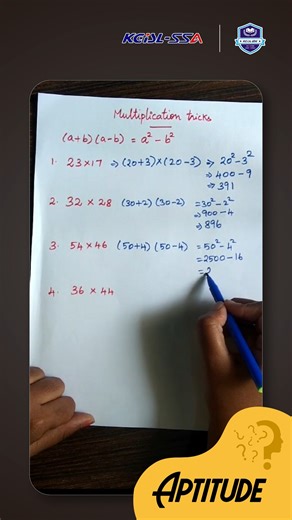 KGiSL-SSA
Multiplication tricks
(a+b) (a-b) = a² - b²
1. 23 × 17 ⇒ (20+3)×(20-3) ⇒ 20² - 3²
⇒ 400 - 9
⇒ 391
2. 32 × 28 (30+2) (30-2) = 30² - 2²
⇒ 900 - 4
⇒ 896
3. 54 × 46 (50+4) (50-4) = 50² - 4²
= 2500 - 16
= 2
4. 36 × 44
APTITUDE